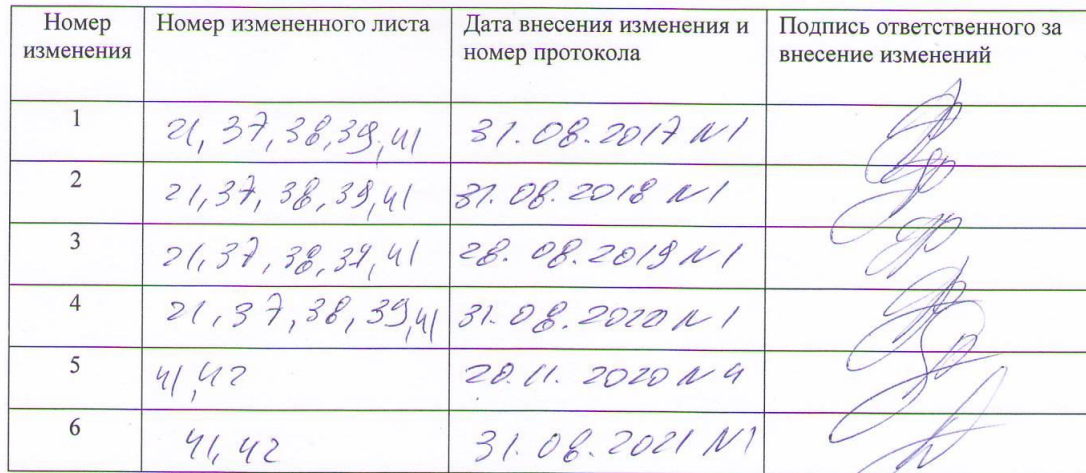 Номер изменения Номер измененного листа Дата внесения изменения и номер протокола Подпись ответственного за внесение изменений
1 21, 37, 38, 39, 41 31.08.2017 N1
2 21, 37, 38, 39, 41 31.08.2018 N1
3 21, 37, 38, 39, 41 28.08.2019 N1
4 21, 37, 38, 39, 41 31.08.2020 N1
5 41, 42 20.11.2020 N4
6 41, 42 31.08.2021 N1